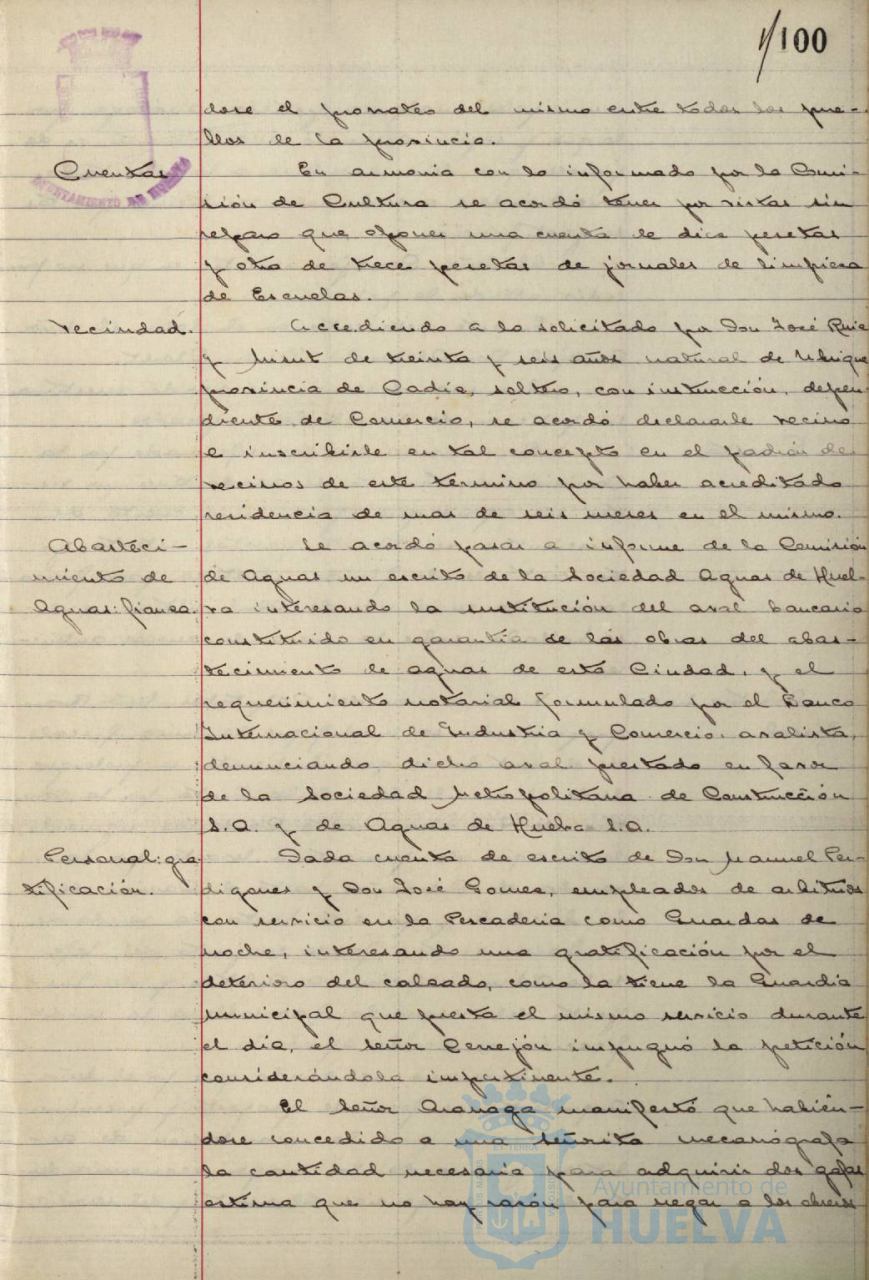 1/100
dose el prorrateo del mismo entre todos los pue-
blos de la provincia.
Cuentas
AYUNTAMIENTO DE HUELVA
En armonia con lo informado por la Comi-
sión de Cultura se acordó tener por vistas sin
reparo que oponer una cuenta de diez pesetas
y otra de trece pesetas de jornales de limpieza
de Escuelas.
Vecindad.
Accediendo a lo solicitado por Don José Ruiz
y de treinta y seis años natural de Ubrique
provincia de Cadiz, soltero, con instrucción, depen-
diente de Comercio, se acordó declararle vecino
e inscribirle en tal concepto en el padrón de
vecinos de este término por haber acreditado
residencia de mas de seis meses en el mismo.
Abasteci-
miento de
Aguas: fianza.
Se acordó pasar a informe de la Comisión
de Aguas un escrito de la Sociedad Aguas de Huel-
va interesando la sustitución del aval bancario
constituido en garantía de las obras del abas-
tecimiento de aguas de esta Ciudad, y el
requerimiento notarial formulado por el Banco
Internacional de Industria y Comercio, avalista,
denunciando dicho aval prestado en favor
de la Sociedad Metropolitana de Construcción
S.A. y de Aguas de Huelva S.A.
Personal: gra-
tificación.
Dada cuenta de escrito de Don Manuel Per-
digones y Don José Gomez, empleados de arbitrios
con servicio en la Pescaderia como Guardas de
noche, interesando una gratificación por el
deterioro del calzado, como la tiene la Guardia
Municipal que presta el mismo servicio durante
el día, el señor Cerrejón impugnó la petición
considerándola impertinente.
El señor Aranaga manifestó que habién-
dose concedido a una señorita mecanógrafa
la cantidad necesaria para adquirir dos gafas
estima que no hay razón para negar a los obreros
Ayuntamiento de
HUELVA